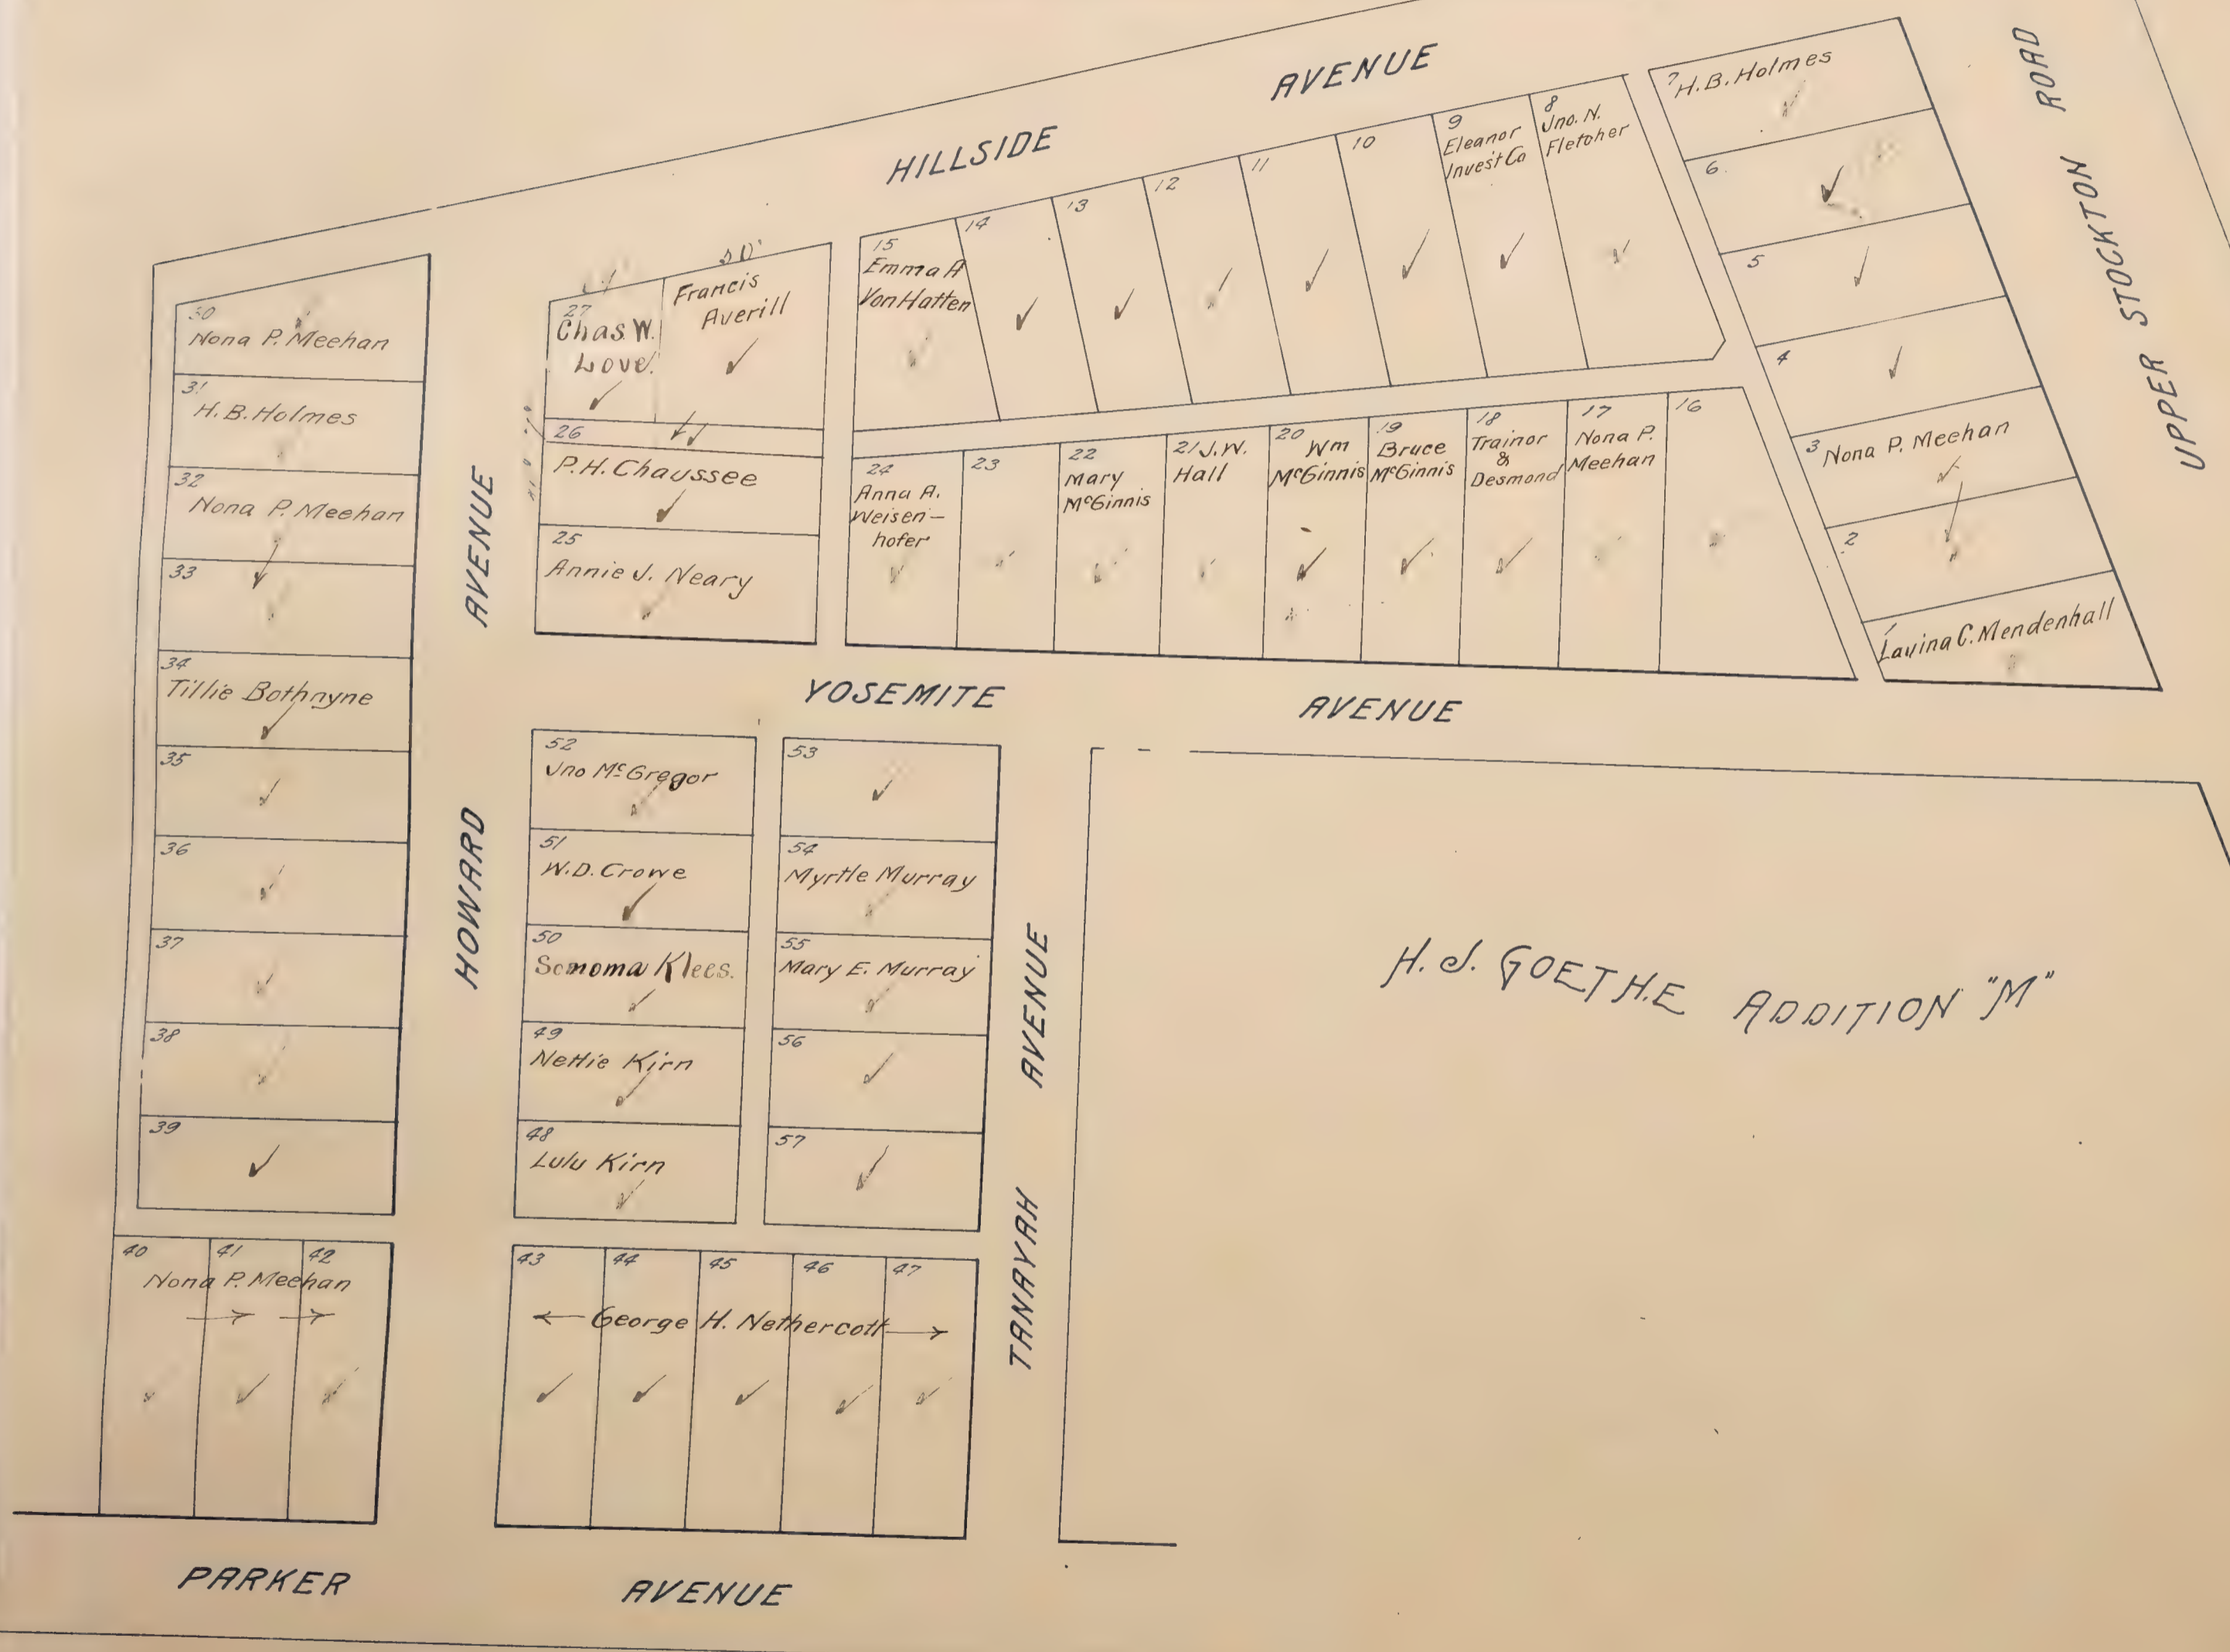 HILLSIDE AVENUE
UPPER STOCKTON ROAD
7
H.B. Holmes
6
5
4
3
Nona P. Meehan
2
1
Lavina C. Mendenhall
8
Jno. N.
Fletcher
9
Eleanor
Invest Co
10
11
12
13
14
15
Emma A
Von Hatten
16
17
Nona P.
Meehan
18
Trainor
&
Desmond
19
Bruce
McGinnis
20
Wm
McGinnis
21 J.W.
Hall
22
Mary
McGinnis
23
24
Anna A.
Weisen—
hofer
50'
27
Chas. W.
Love.
Francis
Averill
26
P.H. Chaussee
25
Annie J. Neary
30
Nona P. Meehan
31
H.B. Holmes
32
Nona P. Meehan
33
34
Tillie Bothnyne
35
36
37
38
39
40
41
42
Nona P. Meehan
HOWARD AVENUE
YOSEMITE AVENUE
52
Jno McGregor
51
W.D. Crowe
50
Klees.
49
Nettie Kirn
48
Lulu Kirn
53
54
Myrtle Murray
55
Mary E. Murray
56
57
43
44
45
46
47
George H. Nethercott
TANAYAH AVENUE
H. J. GOETHE ADDITION "M"
PARKER AVENUE